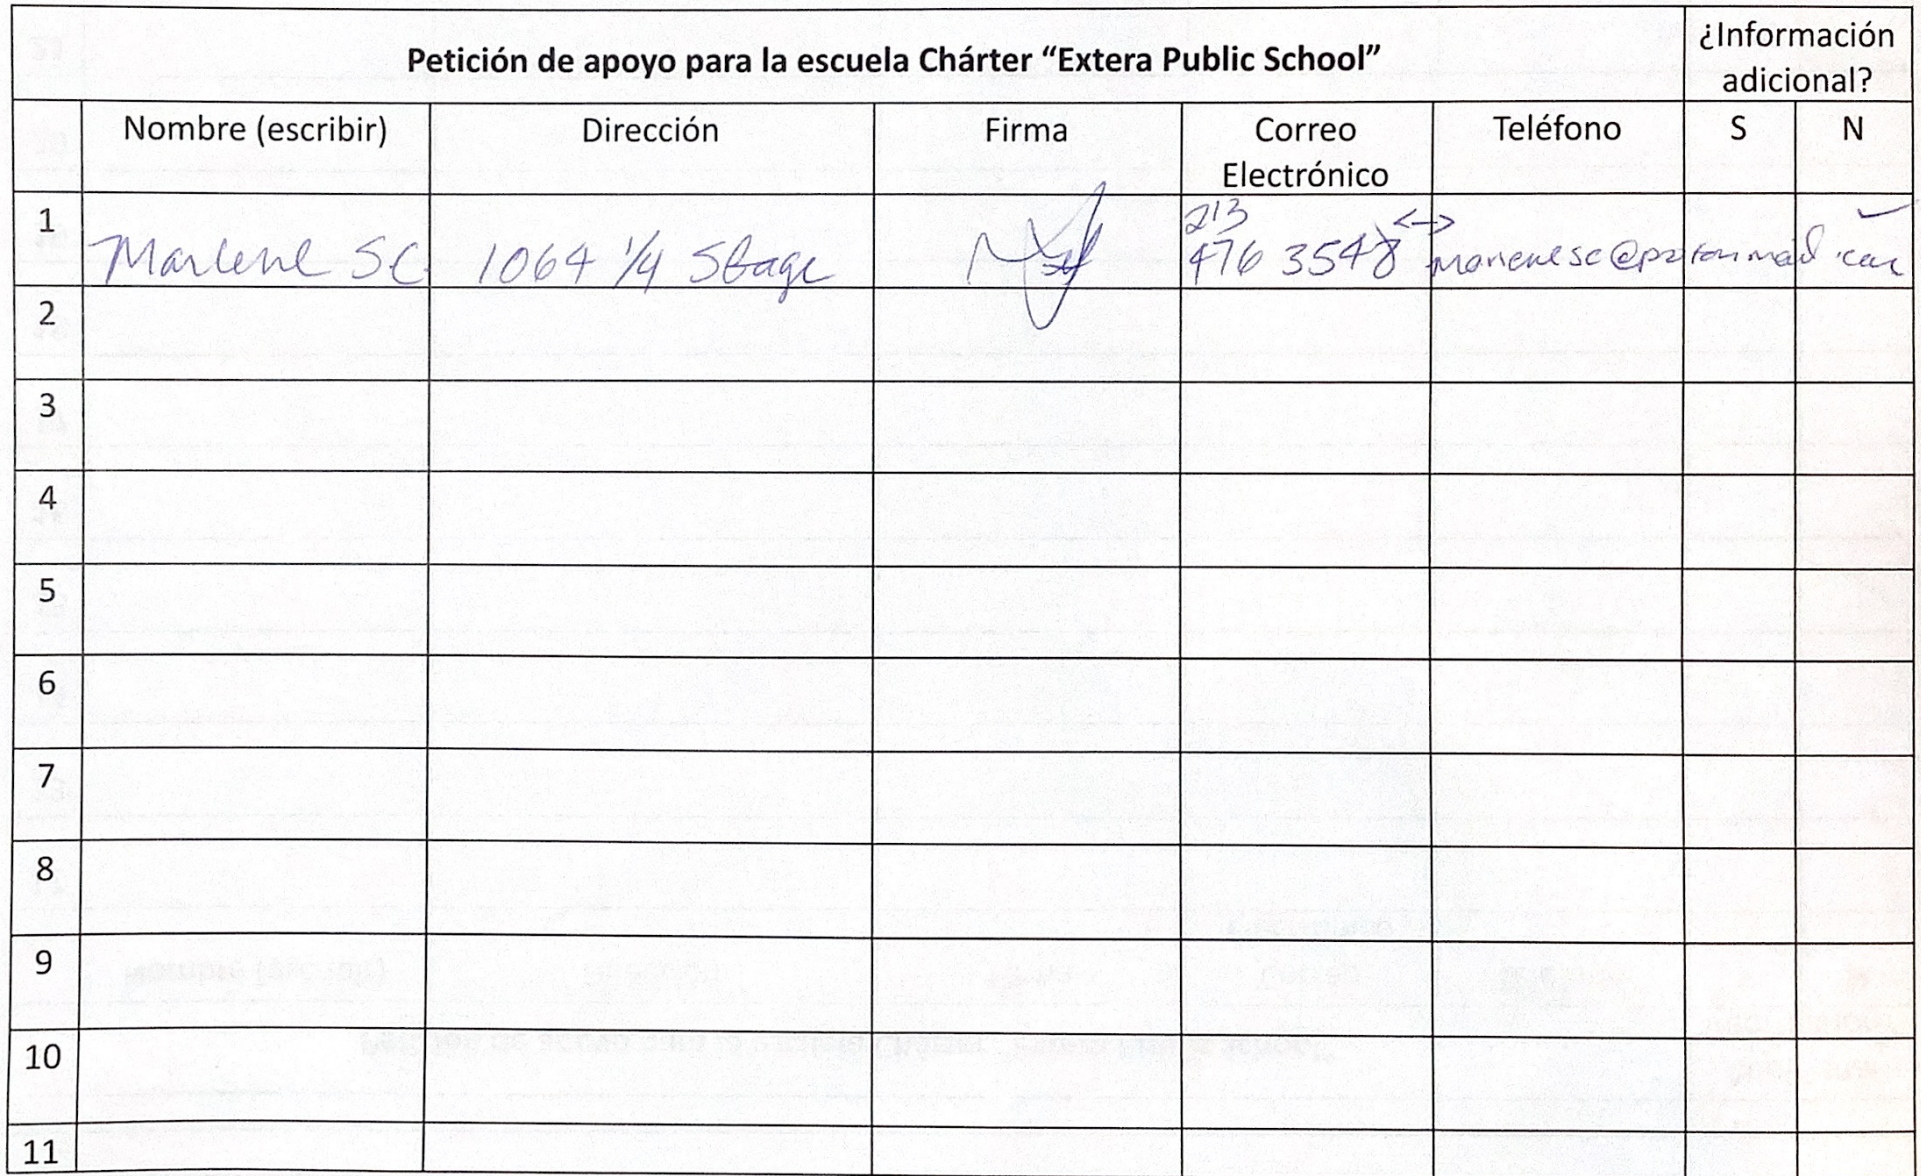 Petición de apoyo para la escuela Chárter “Extera Public School”
¿Información
adicional?
Nombre (escribir) Dirección Firma Correo Teléfono S N
Electrónico
1 213 <-> ✓
Marlene SC 1064 1/4 Stage 476 3548 marlenesc@protonmail.com
2
3
4
5
6
7
8
9
10
11